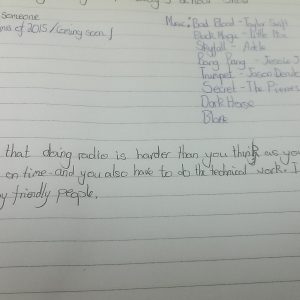 someone
of 2015 / Coming soon
Music: Bad Blood - Taylor Swift
Black Magic - Little Mix
Skyfall - Adele
Bang Bang - Jessie J
Trumpets - Jason Derulo
Secret - The Pierces
Dark Horse
Blank
that doing radio is harder than you think as you
on time and you also have to do the technical work. I
friendly people.